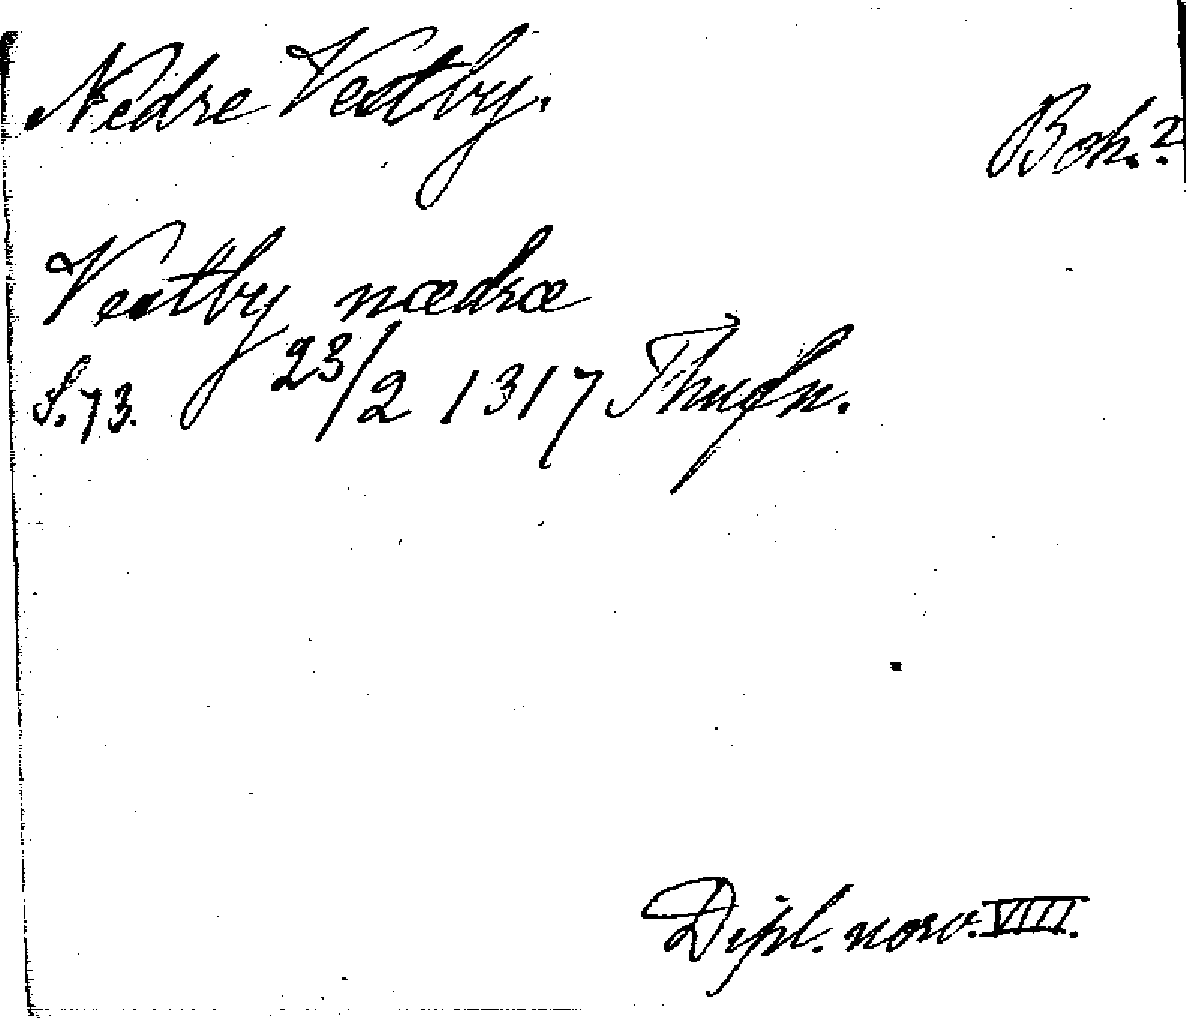 Nedre Vestby.
Boh.?
Vestby nædræ
S. 73. 23/2 1317
Dipl. norv. VIII.